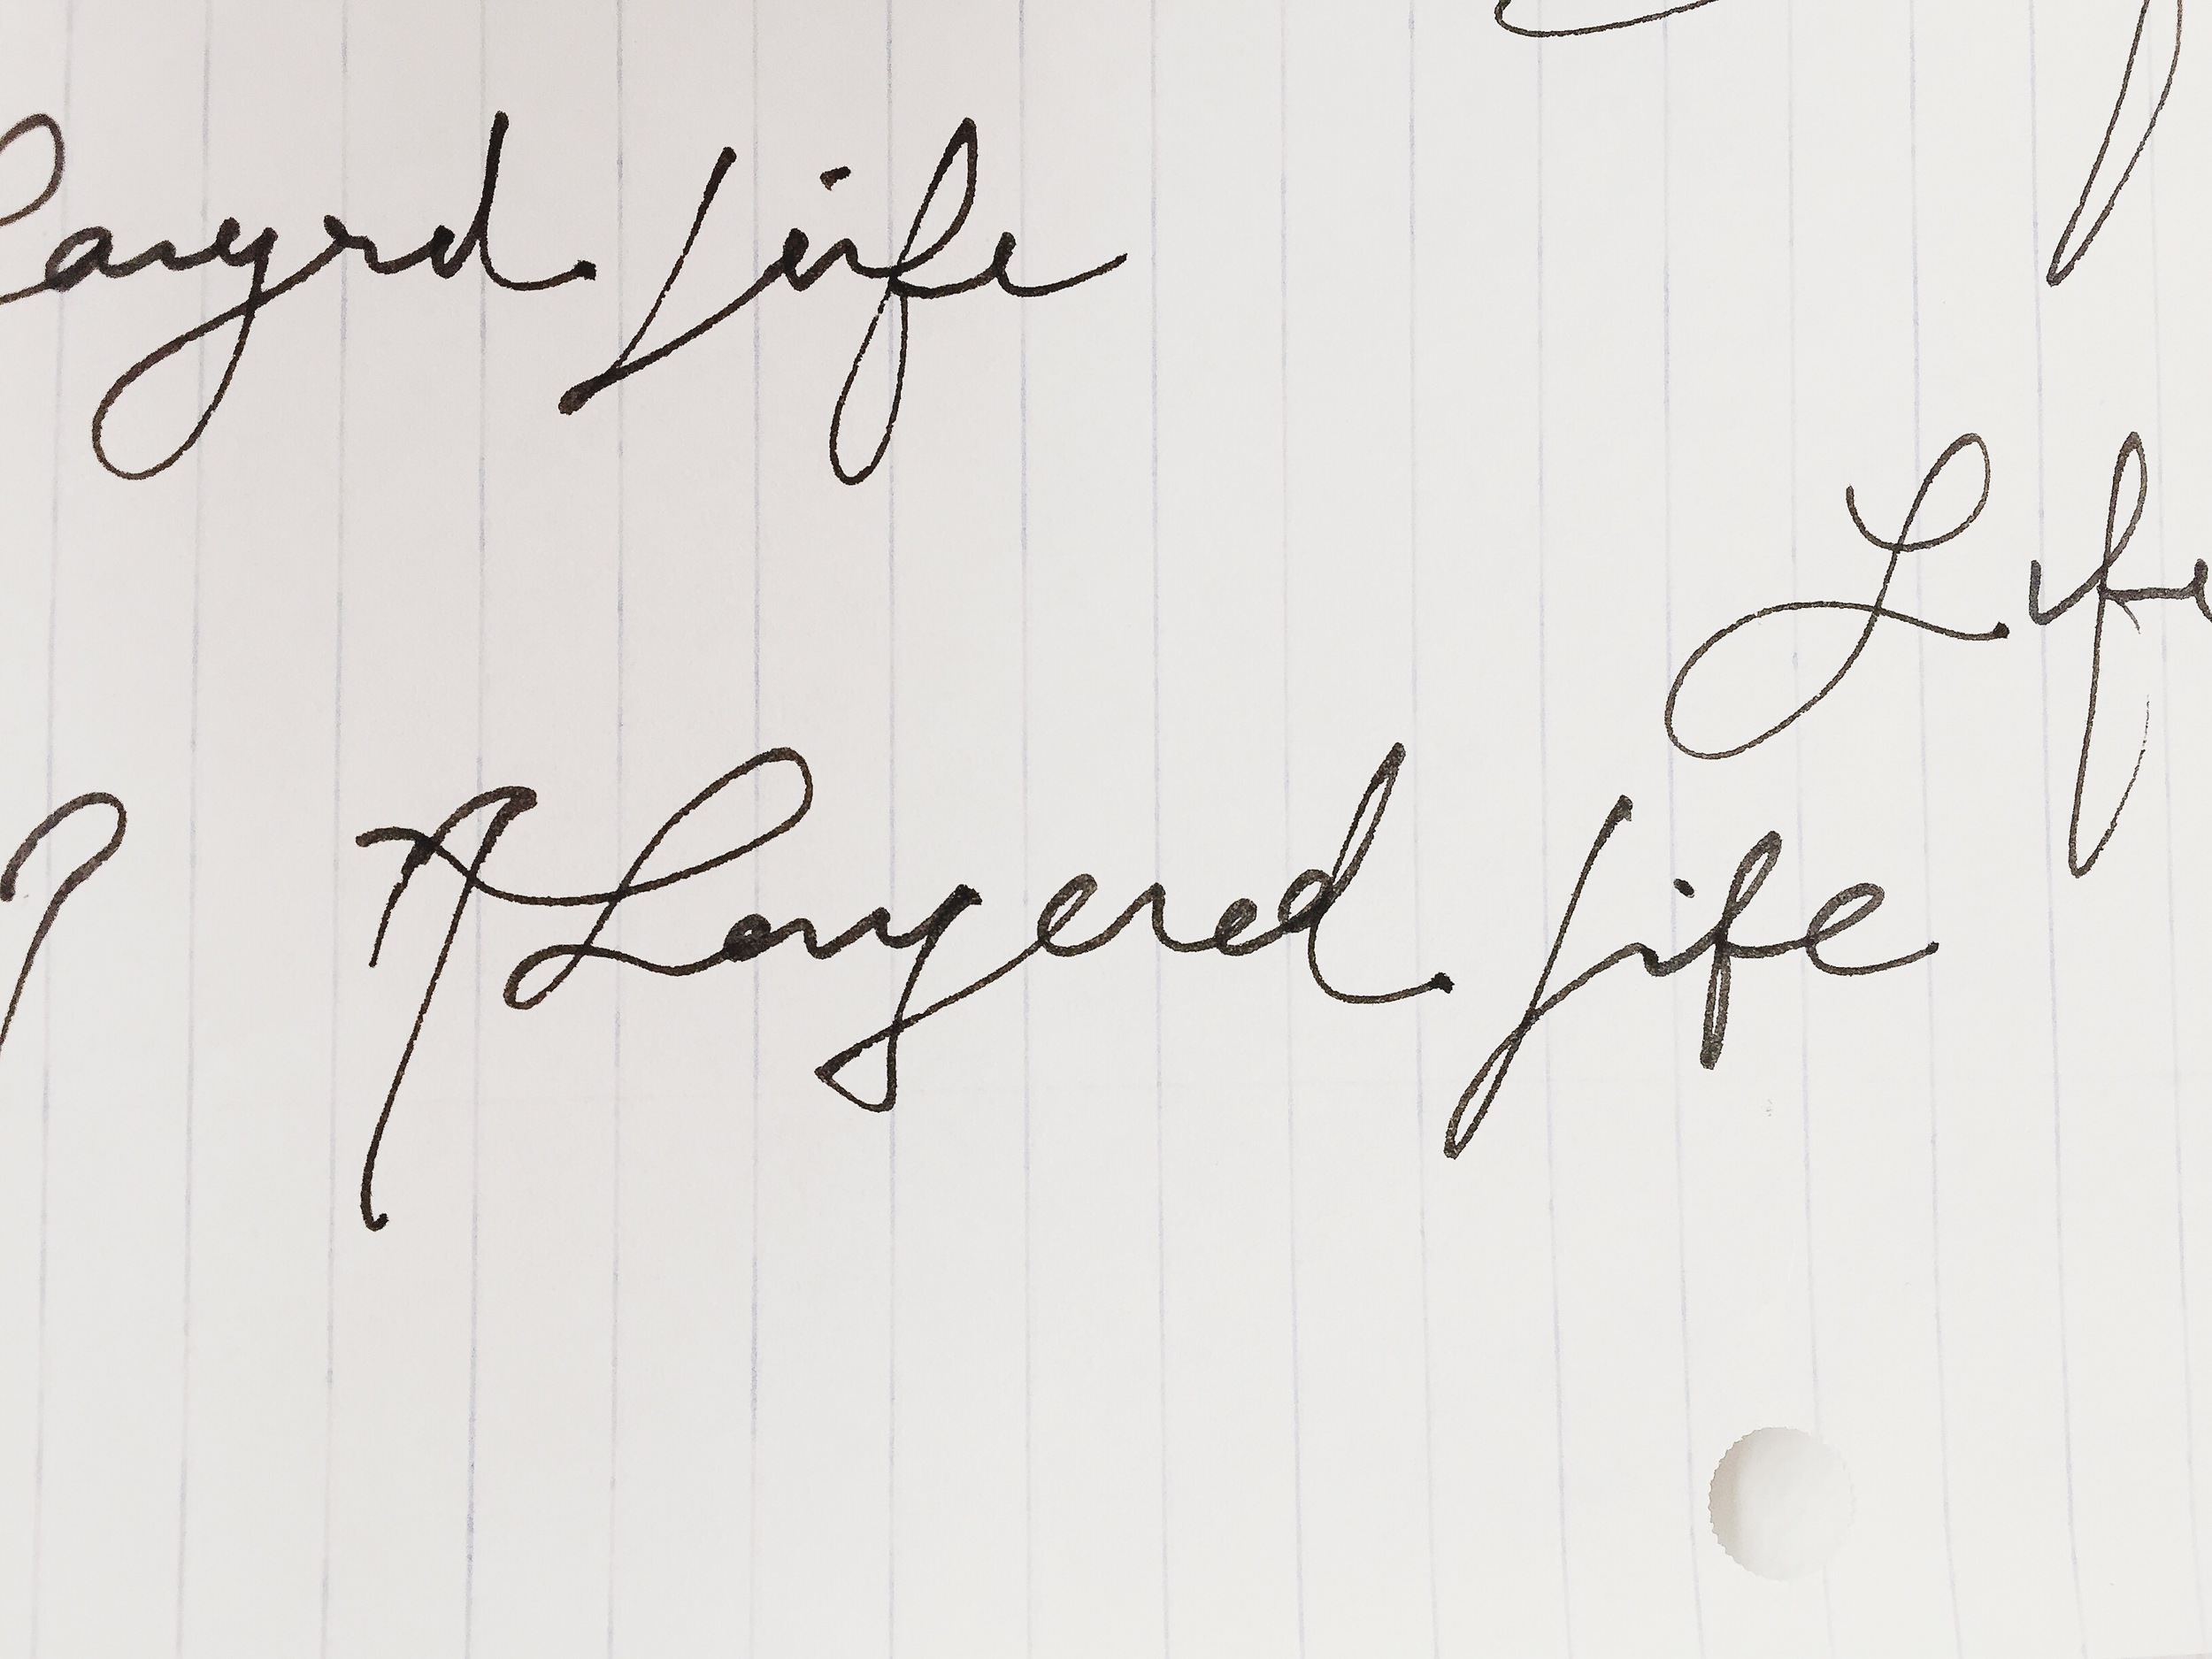 Layerd Life
Life
Layered Life